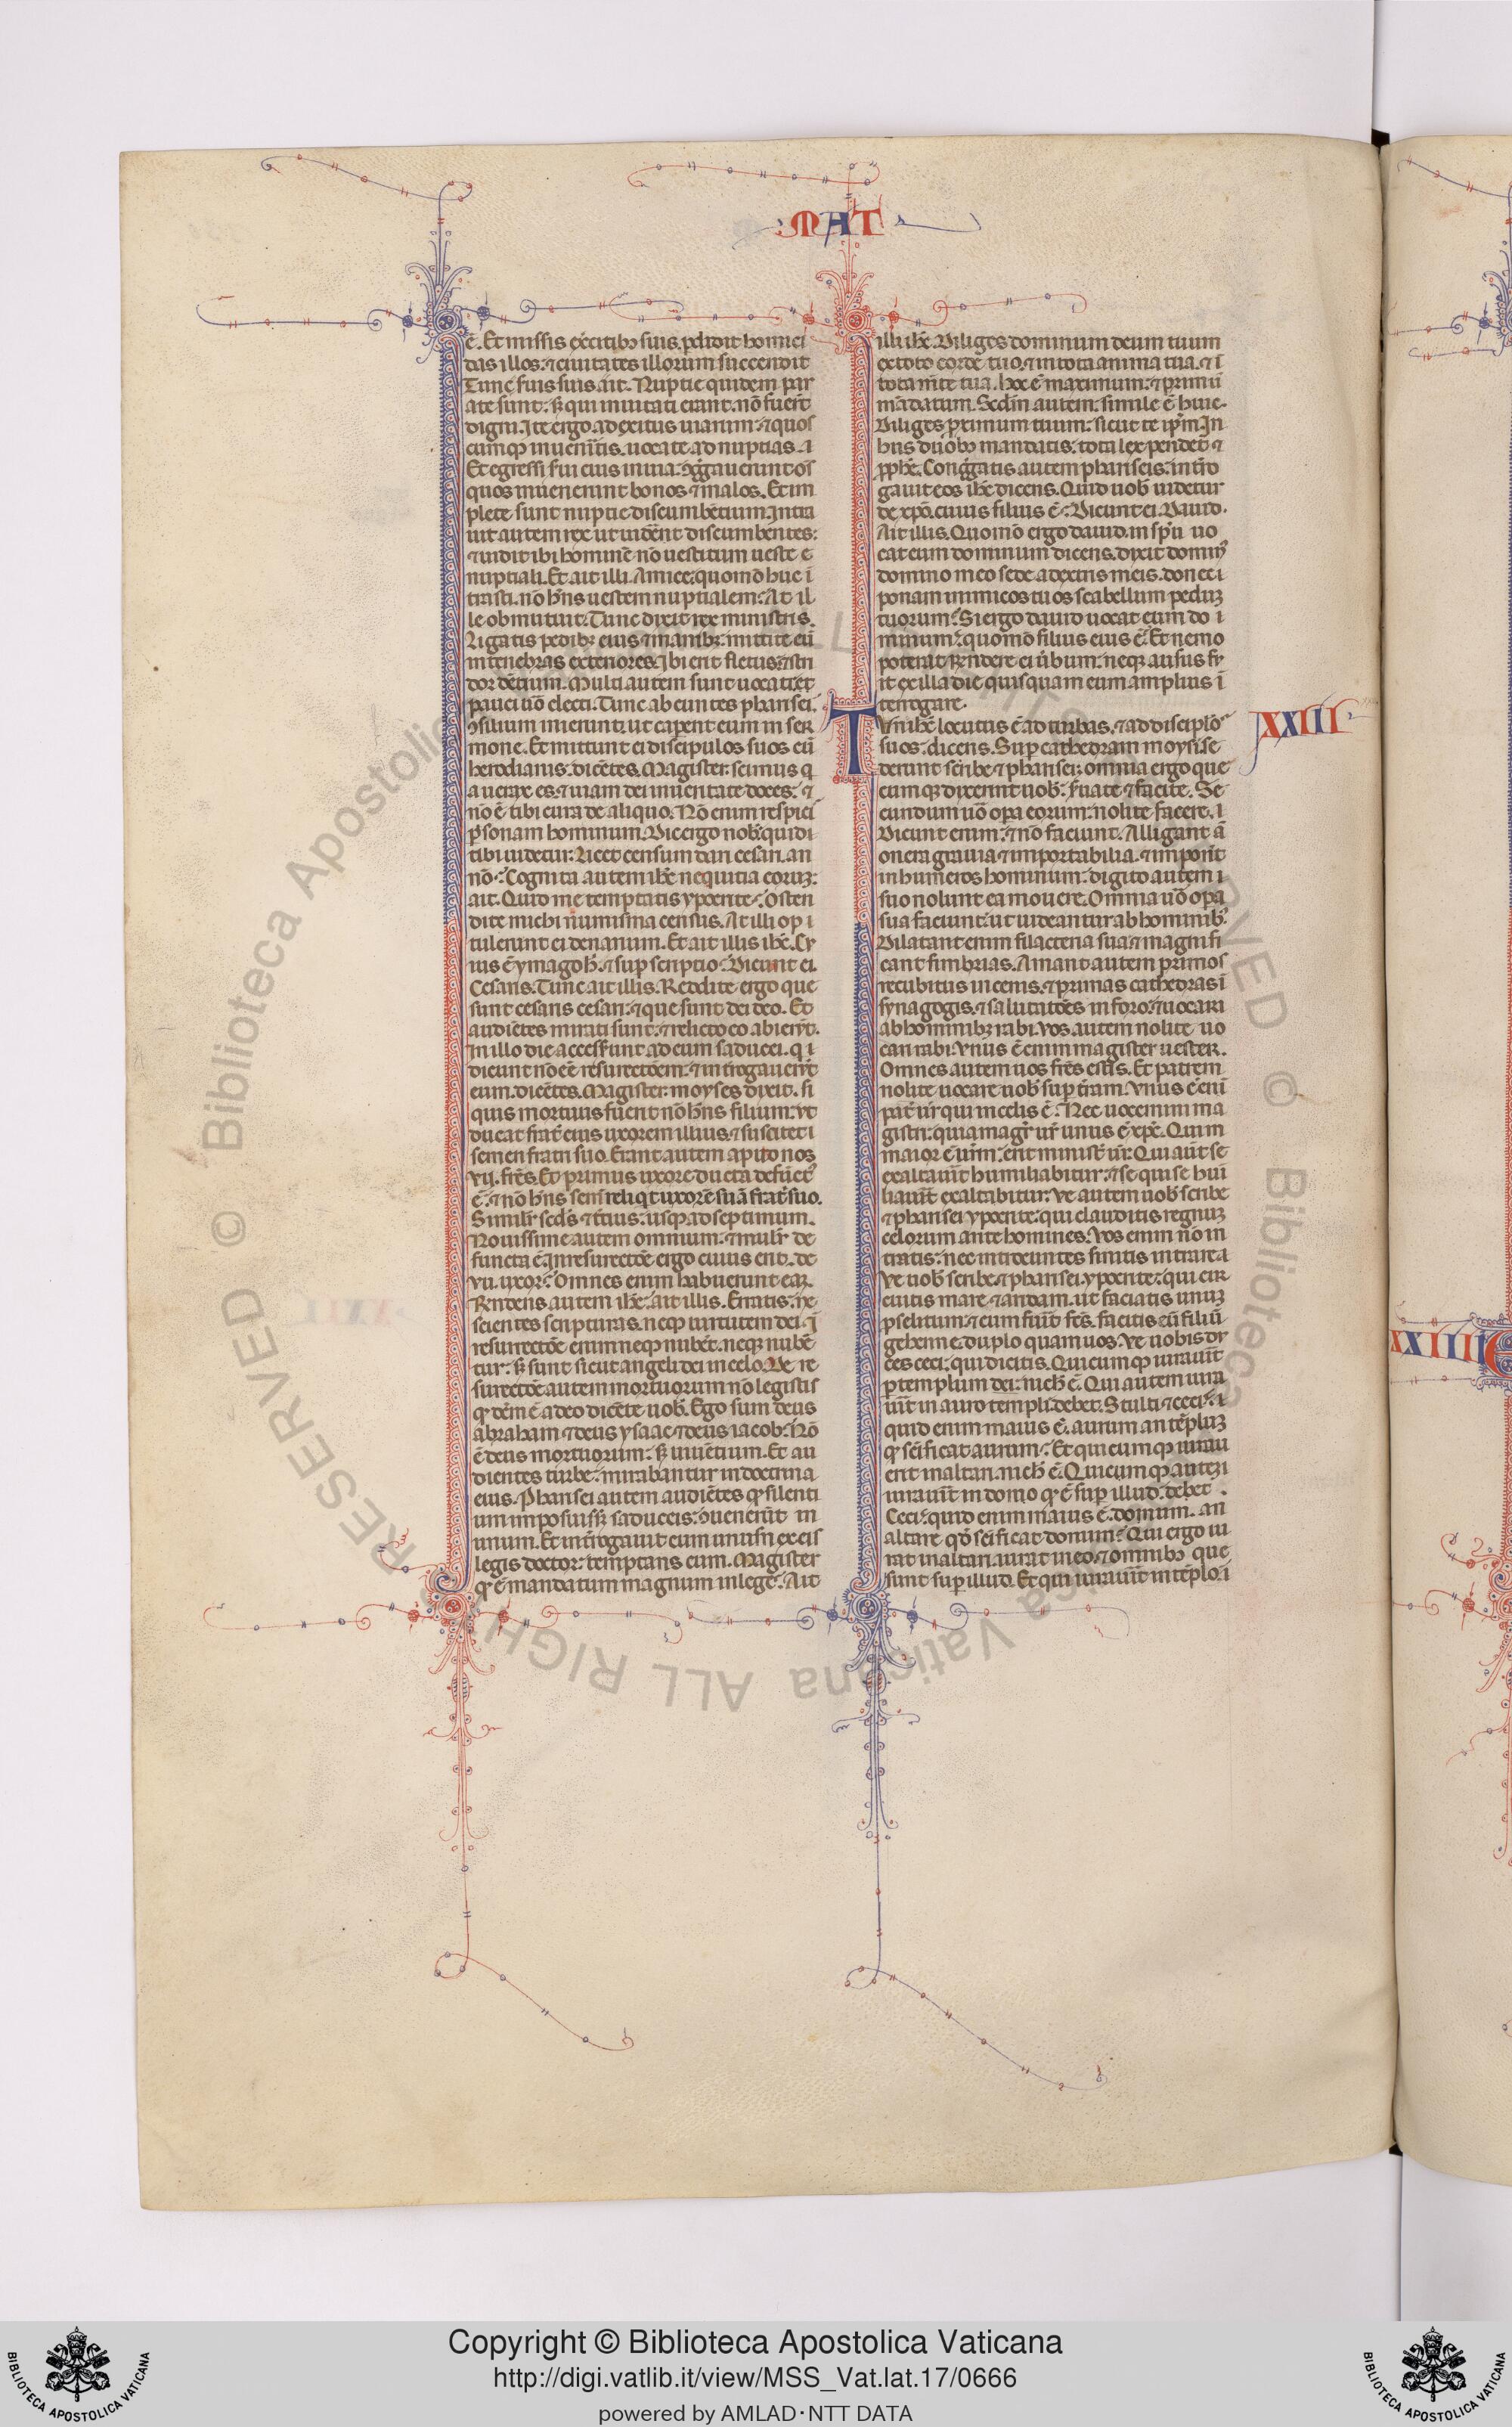 MAT
ē. Et missis exercitibꝫ suis ꝑdidit homici
das illos: ⁊ ciuitates illorum succendit
Tunc suis suis ait. Nuptie quidem par
ate sunt: sꝫ qui inuitati erant: nō fuer̄t
digni. Ite ergo ad exitus uiarum: ⁊ quos
cumqꝫ inuenītis. uocate ad nuptias. i
Et egressi sui eius in uia: ꝯg̃gauerunt os
quos inuenerunt bonos ⁊ malos. Et im
plete sunt nuptie discumbētium. Intra
uit autem rex ut uidēt discumbentes:
⁊ uidit ibi hominē nō uestitum ueste e
nuptiali. Et ait illi. Amice: quomō huc ī
trasti. nō hn̄s uestem nuptialem: At il
le obmutuit. Tunc dixit rex ministris.
Ligatis pedibꝫ eius ⁊ manibꝫ: mittite eū
in tenebras exteriores. Ibi erit fletus: ⁊ stri
dor dētium. Multi autem sunt uocati: et
pauci uō electi. Tunc abeuntes pharisei.
ꝯsilium inierunt: ut caperent eum in ser
mone. Et mittunt ei discipulos suos cū
herodianis: dicētes. Magister: scimus q
a uerax es. ⁊ uiam dei in ueritate doces: ⁊
nō ē tibi cura de aliquo. Nō enim respici
ꝑsonam hominum. Dic ergo nob̄: quid i
tibi uidetur: Licet censum dari cesari. an
nō: Cognita autem ihc̄ nequitia eorum:
ait. Quid me temptatis ypocrite: Osten
dite michi numisma census. At illi op i
tulerunt ei denarium. Et ait illis ihc̄. Cu
ius ē ymago h̄. ⁊ suꝑscriptio: Dicunt ei.
Cesaris. Tunc ait illis. Reddite ergo que
sunt cesaris cesari: ⁊ que sunt dei deo. Et
audiētes mirati sunt: ⁊ relicto eo abier̄t.
In illo die accesserunt ad eum saducei. q i
dicunt nō eē resurectōem: ⁊ inťrogauer̄t
eum. dicētes. Magister: moyses dixit. si
quis mortuus fuerit nō hn̄s filium: ut
ducat frat̄ eius uxorem illius. ⁊ suscitet i
semen fratri suo. Erant autem aput nos
vij. frēs. Et primus uxore ducta defūctꝰ
ē. ⁊ nō hn̄s sem̄ reliqt uxorē suā frat̄ suo.
Similiť sed̄s ⁊ ťtius: usqꝫ ad septimum.
Nouissime autem omnium: ⁊ muliť de
functa ē. In resurectōe ergo cuius erit. de
vii. uxor: Omnes enim habuerunt eaꝫ
Rn̄dens autem ihc̄: ait illis. Erratis: ne
scientes scripturas. neqꝫ uirtutem dei. I
resurrectōe enim neqꝫ nubēt. neqꝫ nubē
tur: sꝫ sunt sicut angeli dei in celo. De re
surectōe autem mortuorum nō legistis
qꝫ dc̄m ē a deo dicēte uob̄. Ego sum deus
abraham ⁊ deus ysaac ⁊ deus iacob: Nō
ē deus mortuorum: sꝫ uiuētium. Et au
dientes turbe: mirabantur in doctrina
eius. Pharisei autem audiētes qꝫ silenti
um imposuissꝫ saduceis: ꝯuenerūt in
unum. Et inťrogauit eum unus ex eis
legis doctor: temptans eum. Magister
qꝫ ē mandatum magnum in lege: Ait
illi ihc̄. Diliges dominum deum tuum
ex toto corde tuo. ⁊ in tota anima tua. ⁊ ī
tota mīte tua. Hoc ē maximum: ⁊ primū
mādatum. Sed̄m autem: simile ē huic.
Diliges proximum tuum: sicut te ip̄m. In
hiis duobꝫ mandatis: tota lex pendet ⁊
ꝓphē. Cong̃gatis autem phariseis: inťro
gauit eos ihc̄ dicens. Quid uob̄ uidetur
de xpō. cuius filius ē: Dicunt ei. Dauid.
Ait illis. Quomō ergo dauid in sp̄u uo
cat eum dominum dicens. dixit dominꝰ
domino meo sede a dextris meis. donec i
ponam inimicos tuos scabellum peduꝫ
tuorum: Si ergo dauid uocat eum do i
minum: quomō filius eius ē: Et nemo
poterat rn̄dere ei ūbum: neqꝫ ausus fu
it ex illa die quisquam eum amplius ī
terrogare.
XXIII
Tunc ihc̄ locutus ē ad turbas. ⁊ ad disciplōs
suos: dicens. Suꝑ cathedram moysi. se
derunt scribe ⁊ pharisei: omnia ergo que
cumqꝫ dixerint uob̄: ẜuate ⁊ facite. Se
cundum uō oꝑa eorum: nolite facere. i
Dicunt enim: ⁊ nō faciunt. Alligant ā
onera grauia ⁊ importabilia. ⁊ imponūt
in humeros hominum: digito autem i
suo nolunt ea mouere. Omnia uō oꝑa
sua faciunt: ut uideantur ab hominibꝫ.
Dilatant enim filacteria sua ⁊ magnifi
cant fimbrias. Amant autem primos
recubitus in cenis. ⁊ primas cathedras ī
synagogis. ⁊ salutatōes in foro. ⁊ uocari
ab hominibꝫ rabi. Vos autem nolite uo
cari rabi. Vnus ē enim magister uester.
Omnes autem uos frēs estis. Et patrem
nolite uocare uob̄ suꝑ ťram. Vnus ē enī
pat̄ ur̄ qui in celis ē. Nec uocemini ma
gistri: quia magr̄ ur̄ unus ē xpc̄. Qui m
maior ē urm̄: erit minist̄ ur̄: Qui aūt se
exaltauīt humiliabitur: ⁊ se qui se humi
liauīt exaltabitur: Ve autem uob̄ scribe
⁊ pharisei ypocrite: qui clauditis regnuꝫ
celorum ante homines. Vos enim nō in
tratis: nec introeuntes sinitis intrare. i
Ve uob̄ scribe ⁊ pharisei ypocrite: qui cir
cuitis mare ⁊ aridam. ut faciatis unuꝫ
ꝓselitum: ⁊ cum fuit̄ fc̄s. facitis eū filiū
gehenne. duplo quam uos. Ve uobis du
ces ceci: qui dicitis. Quicumqꝫ iurauīt
ꝑ templum dei: nich̄ ē. Qui autem iura
uīt in auro templi: debet. Stulti ⁊ ceci: i
quid enim maius ē. aurum an tēpluꝫ
qꝫ sc̄ificat aurum: Et quicumqꝫ iurau
erit in altari. nich̄ ē. Quicumqꝫ autem
iurauīt in dono qꝫ ē suꝑ illud: debet.
Ceci: quid enim maius ē. donum. an
altare qd̄ sc̄ificat donum: Qui ergo iu
rat in altari. iurat in eo. ⁊ omnibꝫ que
sunt suꝑ illud. Et qui iurauīt in tēplo. i
XXIIII
Copyright © Biblioteca Apostolica Vaticana
http://digi.vatlib.it/view/MSS_Vat.lat.17/0666
powered by AMLAD·NTT DATA
BIBLIOTECA APOSTOLICA VATICANA
BIBLIOTECA APOSTOLICA VATICANA
© Biblioteca Apostolica Vaticana ALL RIGHTS RESERVED